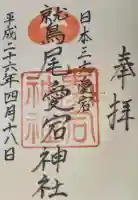 奉拝
日本三大愛宕
鷲尾愛宕神社
平成二十六年四月十八日